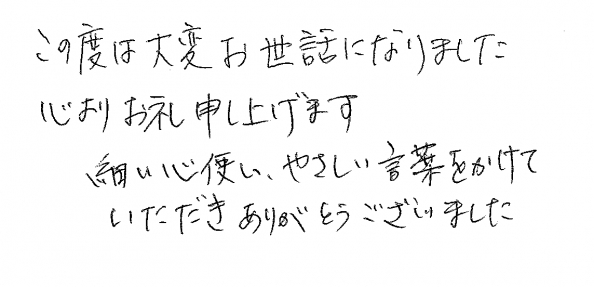 この度は大変お世話になりました
心よりお礼申し上げます
細い心使い、やさしい言葉をかけて
いただきありがとうございました